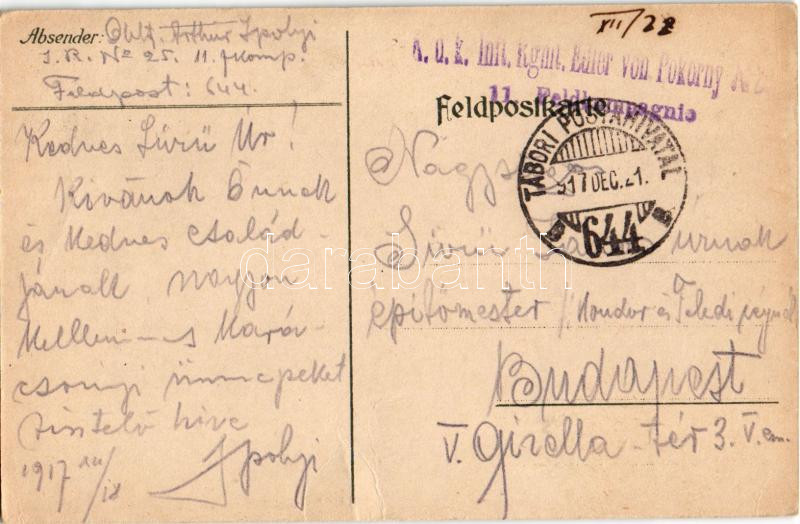 Absender: Oblt. Arthur Ipolyi
I.R. No 25. 11. fkomp.
Feldpost: 644.
Kedves Sürü Úr!
Kivánok Önnek
és kedves család-
jának nagyon
kellemes kará-
csonyi ünnepeket
tisztelő hive
Ipolyi
1917 XII/18
XII/28
K. u. k. Inft. Rgmt. Edler von Pokorny
11. Feldkompagnie
Feldpostkarte
TÁBORI POSTAHIVATAL
917 DEC. 21.
644
Nagys
Sürü úrnak
épitőmester
Budapest
V. Gizella-tér 3. V. em.
darabanth